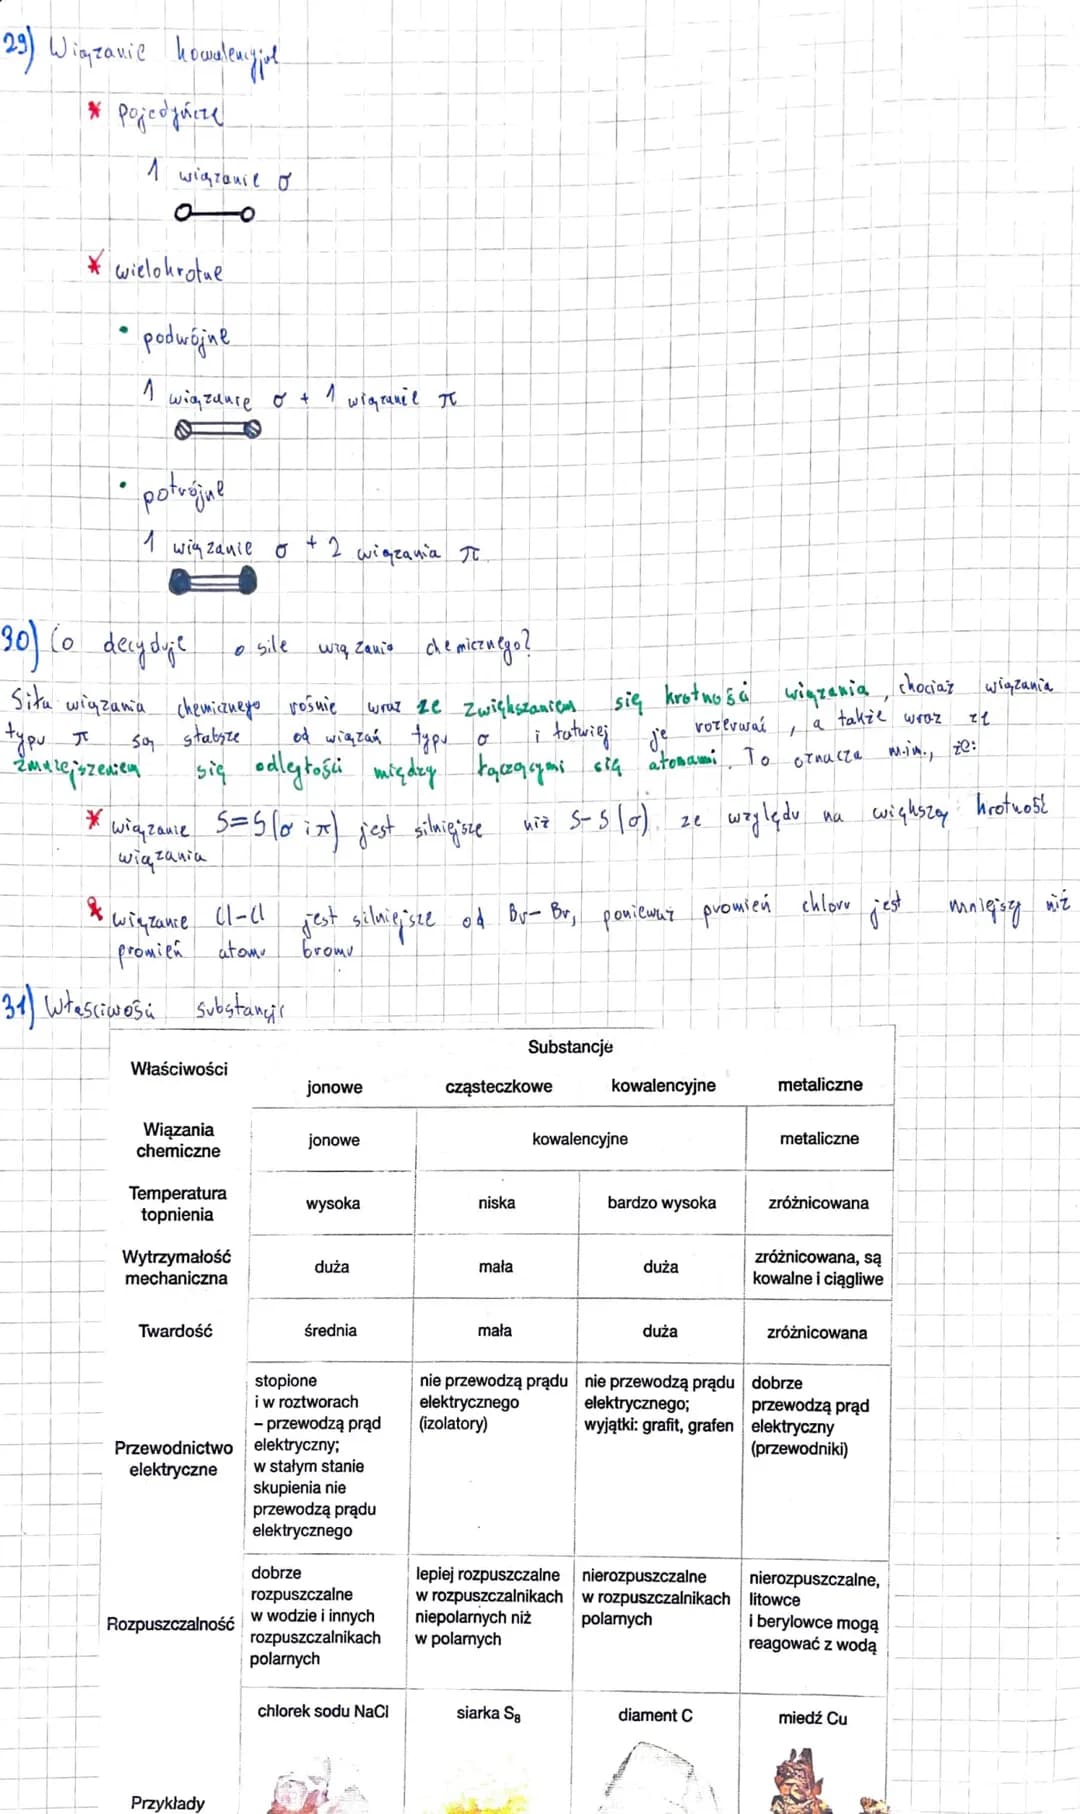 29) Wiązanie kowalencyjne
* pojedyńcze
1 wiązanie σ
* wielokrotne
• podwójne
1 wiązanie σ + 1 wiązanie π
• potrójne
1 wiązanie σ + 2 wiązania π
30) Co decyduje o sile wiązania chemicznego?
Siła wiązania chemicznego rośnie wraz ze zwiększaniem się krotności wiązania, chociaż wiązania
typu π są słabsze od wiązań typu σ i łatwiej je rozerwać, a także wraz ze
zmniejszeniem się odległości między łączącymi się atomami. To oznacza m.in., że:
* wiązanie S=S (σ i π) jest silniejsze niż S-S (σ) ze względu na większą krotność
wiązania
* wiązanie Cl-Cl jest silniejsze od Br-Br, ponieważ promień chloru jest mniejszy niż
promień atomu bromu
31) Właściwości substancji
Substancje
Właściwości
jonowe cząsteczkowe kowalencyjne metaliczne
Wiązania
chemiczne
jonowe
kowalencyjne
metaliczne
Temperatura
topnienia
wysoka
niska
bardzo wysoka
zróżnicowana
Wytrzymałość
mechaniczna
duża
mała
duża
zróżnicowana, są
kowalne i ciągliwe
Twardość
średnia
mała
duża
zróżnicowana
Przewodnictwo
elektryczne
stopione
i w roztworach
– przewodzą prąd
elektryczny;
w stałym stanie
skupienia nie
przewodzą prądu
elektrycznego
nie przewodzą prądu
elektrycznego
(izolatory)
nie przewodzą prądu
elektrycznego;
wyjątki: grafit, grafen
dobrze
przewodzą prąd
elektryczny
(przewodniki)
Rozpuszczalność
dobrze
rozpuszczalne
w wodzie i innych
rozpuszczalnikach
polarnych
lepiej rozpuszczalne
w rozpuszczalnikach
niepolarnych niż
w polarnych
nierozpuszczalne
w rozpuszczalnikach
polarnych
nierozpuszczalne,
litowce
i berylowce mogą
reagować z wodą
Przykłady
chlorek sodu NaCl
siarka S₈
diament C
miedź Cu